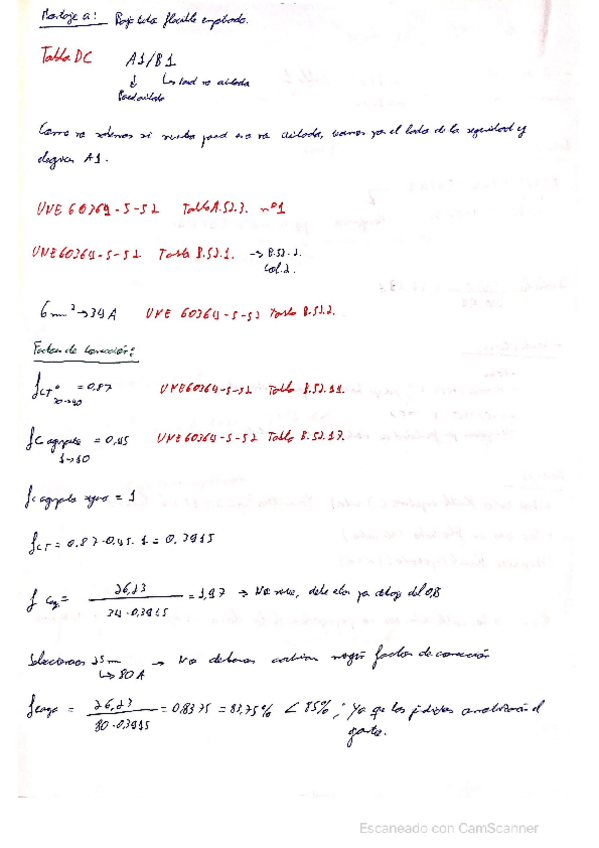 Montaje a: Bajo tubo flexible empotrado.
Tabla DC A1/B1
↓ Los tend no aislada
Pared aislada
Como no sabemos si nuestra pared es o no aislada, vamos por el lado de la seguridad y
elegimos A1.
UNE 60364-5-52 Tabla A.52.3. nº1
UNE 60364-5-52 Tabla B.52.1. → B.52.2.
Col.2.
6 mm² → 34 A UNE 60364-5-52 Tabla B.52.2.
Factores de corrección:
fCTº = 0,87 UNE 60364-5-52 Tabla B.52.14.
fC agrupado = 0,45 UNE 60364-5-52 Tabla B.52.17.
1→10
fC agrupado = 1
fCT = 0.87·0.45·1 = 0,3915
f Carga = 26,23 / 34·0,3915 = 1,97 → No vale, debe estar por debajo del 0,8
Seleccionamos 25 mm → No debemos cambiar ningún factor de corrección
↳ 80 A
fcarga = 26,23 / 80·0,3915 = 0,8375 = 83,75% < 85%; Ya que las pérdidas amortizarán el
gasto.
Escaneado con CamScanner